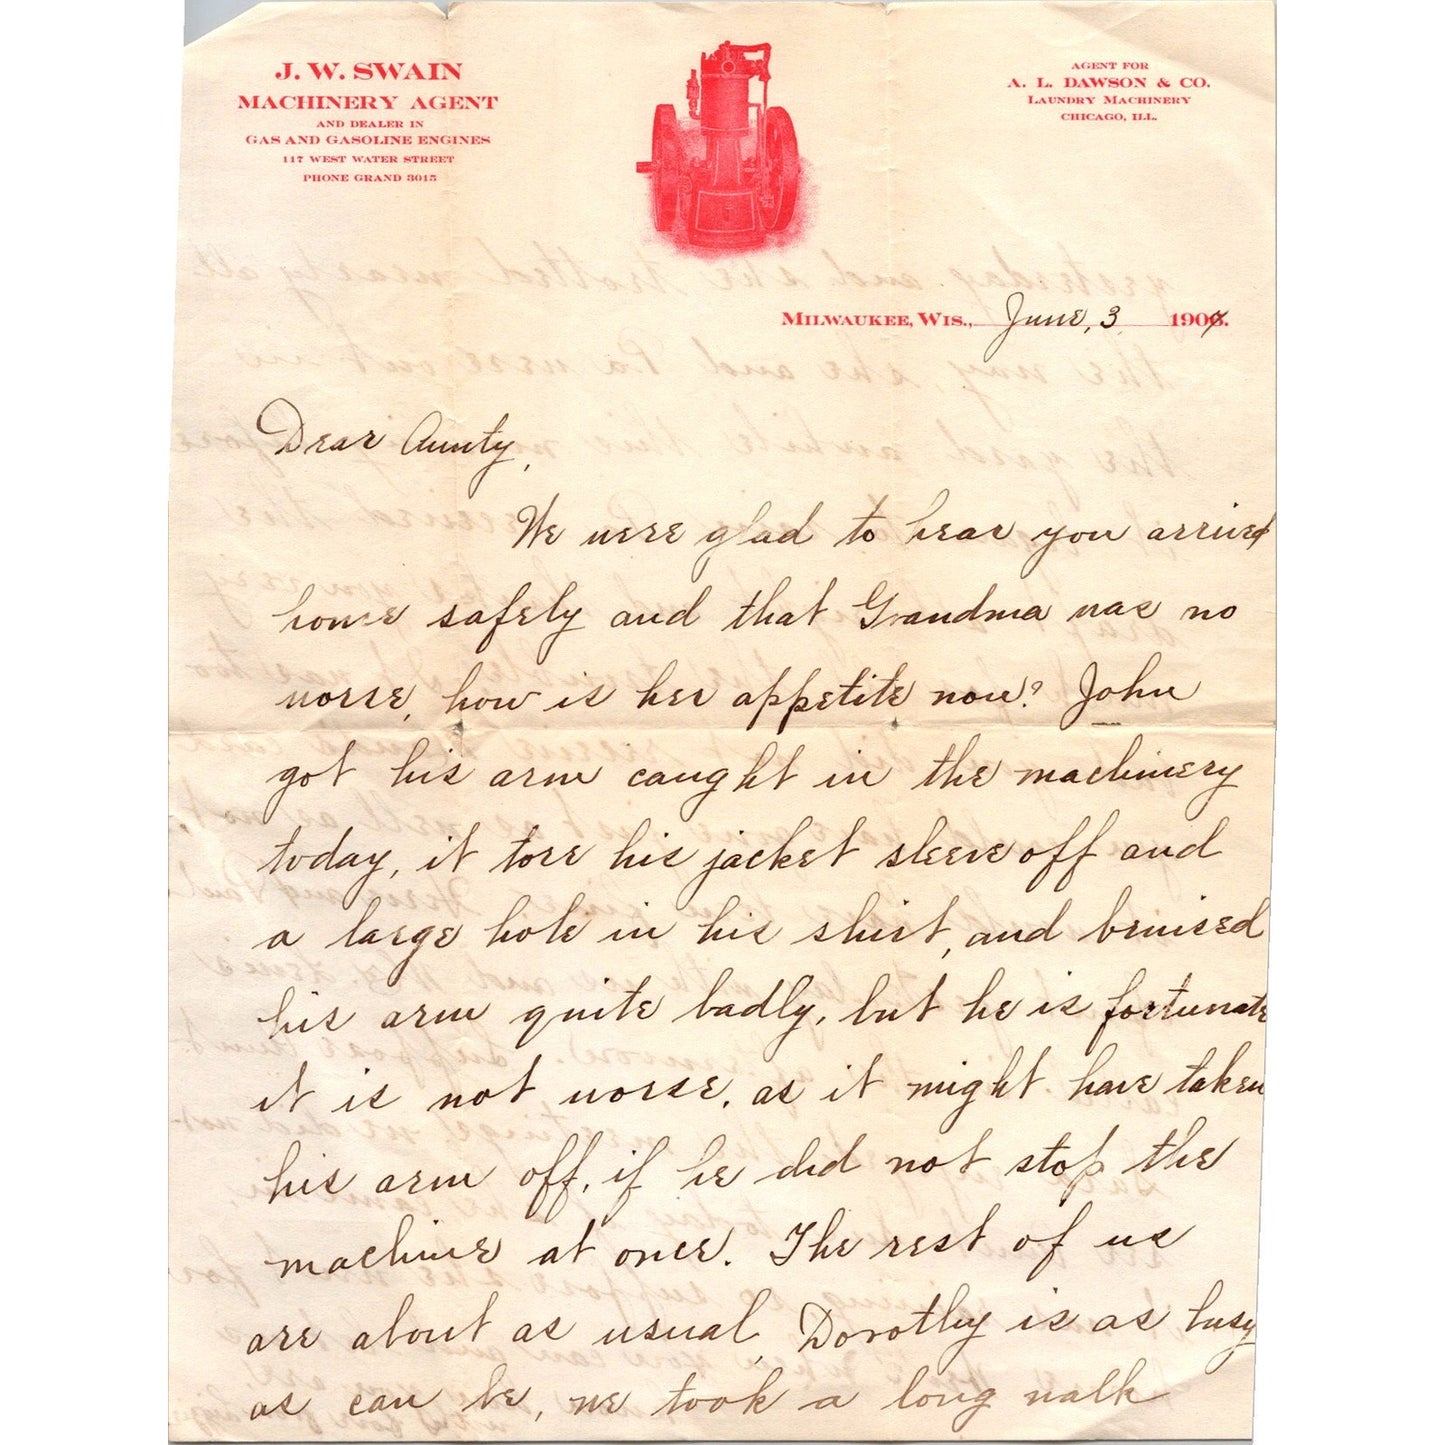 J. W. SWAIN
MACHINERY AGENT
AND DEALER IN
GAS AND GASOLINE ENGINES
117 WEST WATER STREET
PHONE GRAND 3015
AGENT FOR
A. L. DAWSON & CO.
LAUNDRY MACHINERY
CHICAGO, ILL.
MILWAUKEE, WIS., June, 3 1907.
Dear Aunty,
We were glad to hear you arrived
home safely and that Grandma was no
worse, how is her appetite now? John
got his arm caught in the machinery
today, it tore his jacket sleeve off and
a large hole in his shirt, and bruised
his arm quite badly, but he is fortunate
it is not worse, as it might have taken
his arm off, if he did not stop the
machine at once. The rest of us
are about as usual, Dorothy is as busy
as can be, we took a long walk